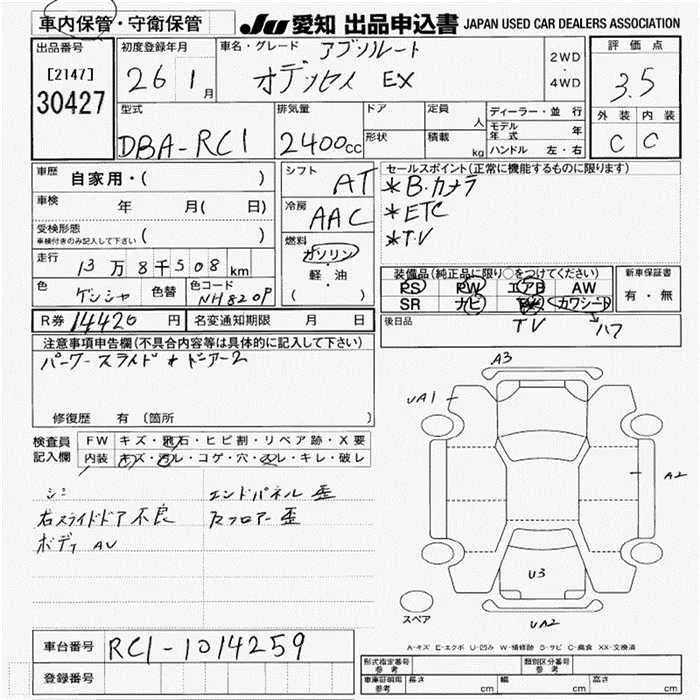 車内保管・守衛保管
JU 愛知 出品申込書 JAPAN USED CAR DEALERS ASSOCIATION
出品番号
[2147]
30427
初度登録年月
26 1月
車名・グレード アブソルート
オデッセイ EX
2WD
・
4WD
評価点
3.5
外装 内装
C C
型式
DBA-RC1
排気量
2400cc
ドア
形状
定員 人
積載 kg
ディーラー・並行
モデル年式 年
ハンドル 左・右
車歴 自家用・( )
車検 年 月( 日)
受検形態
車検付きのみ記入して下さい ( )
走行 13万8千508km
色 ゲンシャ 色替 色コード NH820P
シフト AT
冷房 AAC
燃料
ガソリン
・
軽・油
( )
セールスポイント(正常に機能するものに限ります)
*B・カメラ
*ETC
*T.V
装備品(純正品に限り○をつけてください)
PS PW エアB AW
SR ナビ カワシート
TV ハフ
新車保証書
有・無
後日品
R券 14420円 名変通知期限 月 日
注意事項申告欄(不具合内容等は具体的に記入して下さい)
パーワースライド
修復歴 有 (箇所
検査員記入欄
FW キズ・飛石・ヒビ割・リペア跡・X要
内装 キズ・汚レ・コゲ・穴・スレ・キレ・破レ
シミ エンドパネル歪
右スライドドア不良 Rフロアー歪
ボディ AU
A3
UA1
A2
U3
UA2
スペア
A-キズ E-エクボ U-凹み W-補修跡 S-サビ C-腐食 XX-交換済
車台番号 RC1-1014259
登録番号
形式指定番号
参考
類別区分番号
参考
車庫証明用
参考
長さ cm 幅 cm 高さ cm